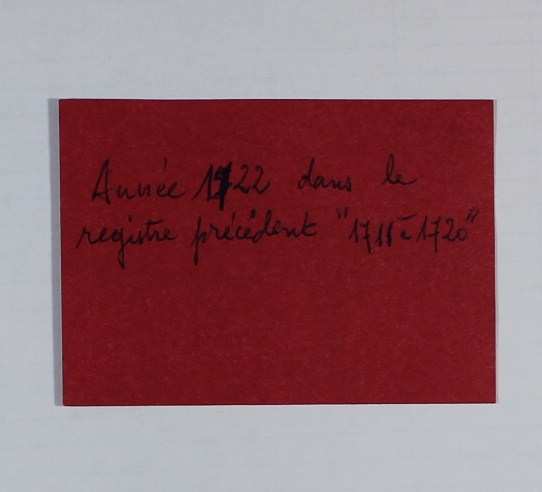 Année 1722 dans le
registre précédent "1711 à 1720"